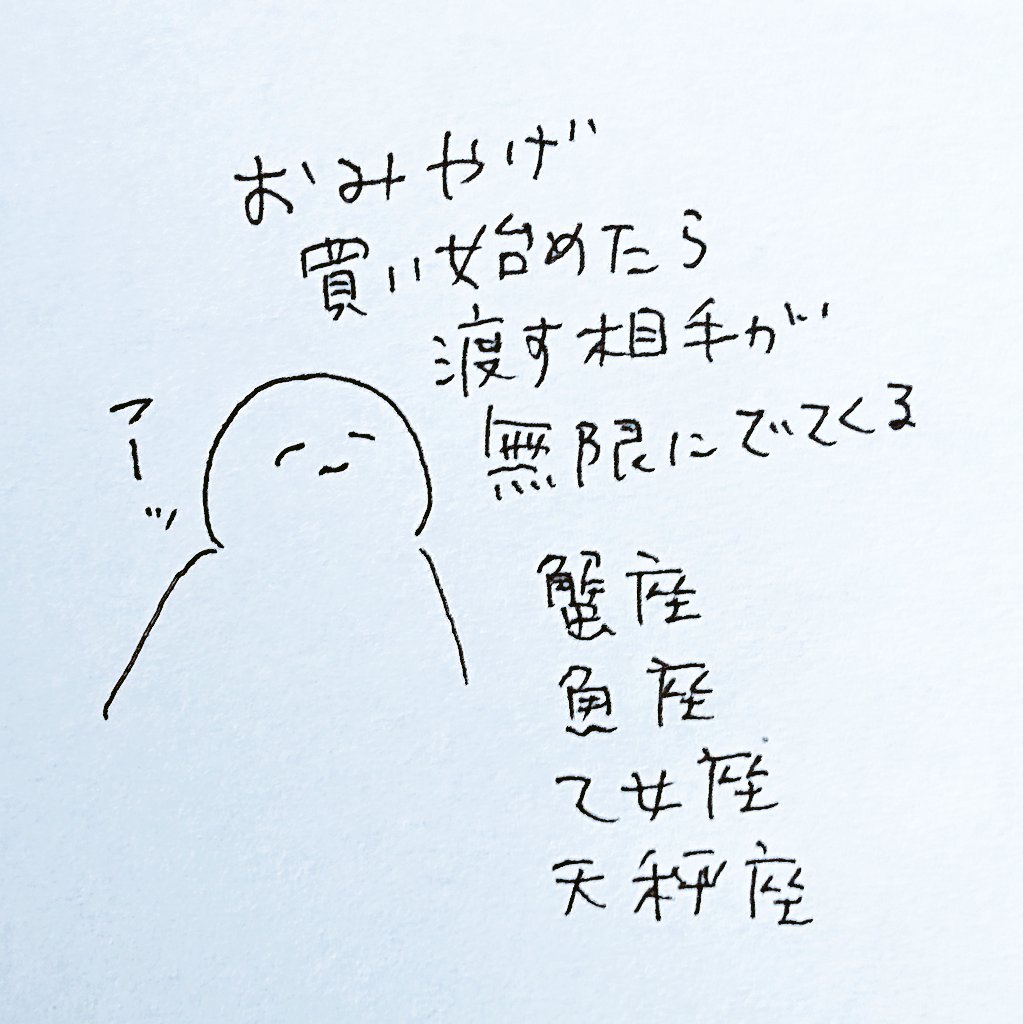 おみやげ
買い始めたら
渡す相手が
無限にでてくる
アーッ
蟹座
魚座
乙女座
天秤座